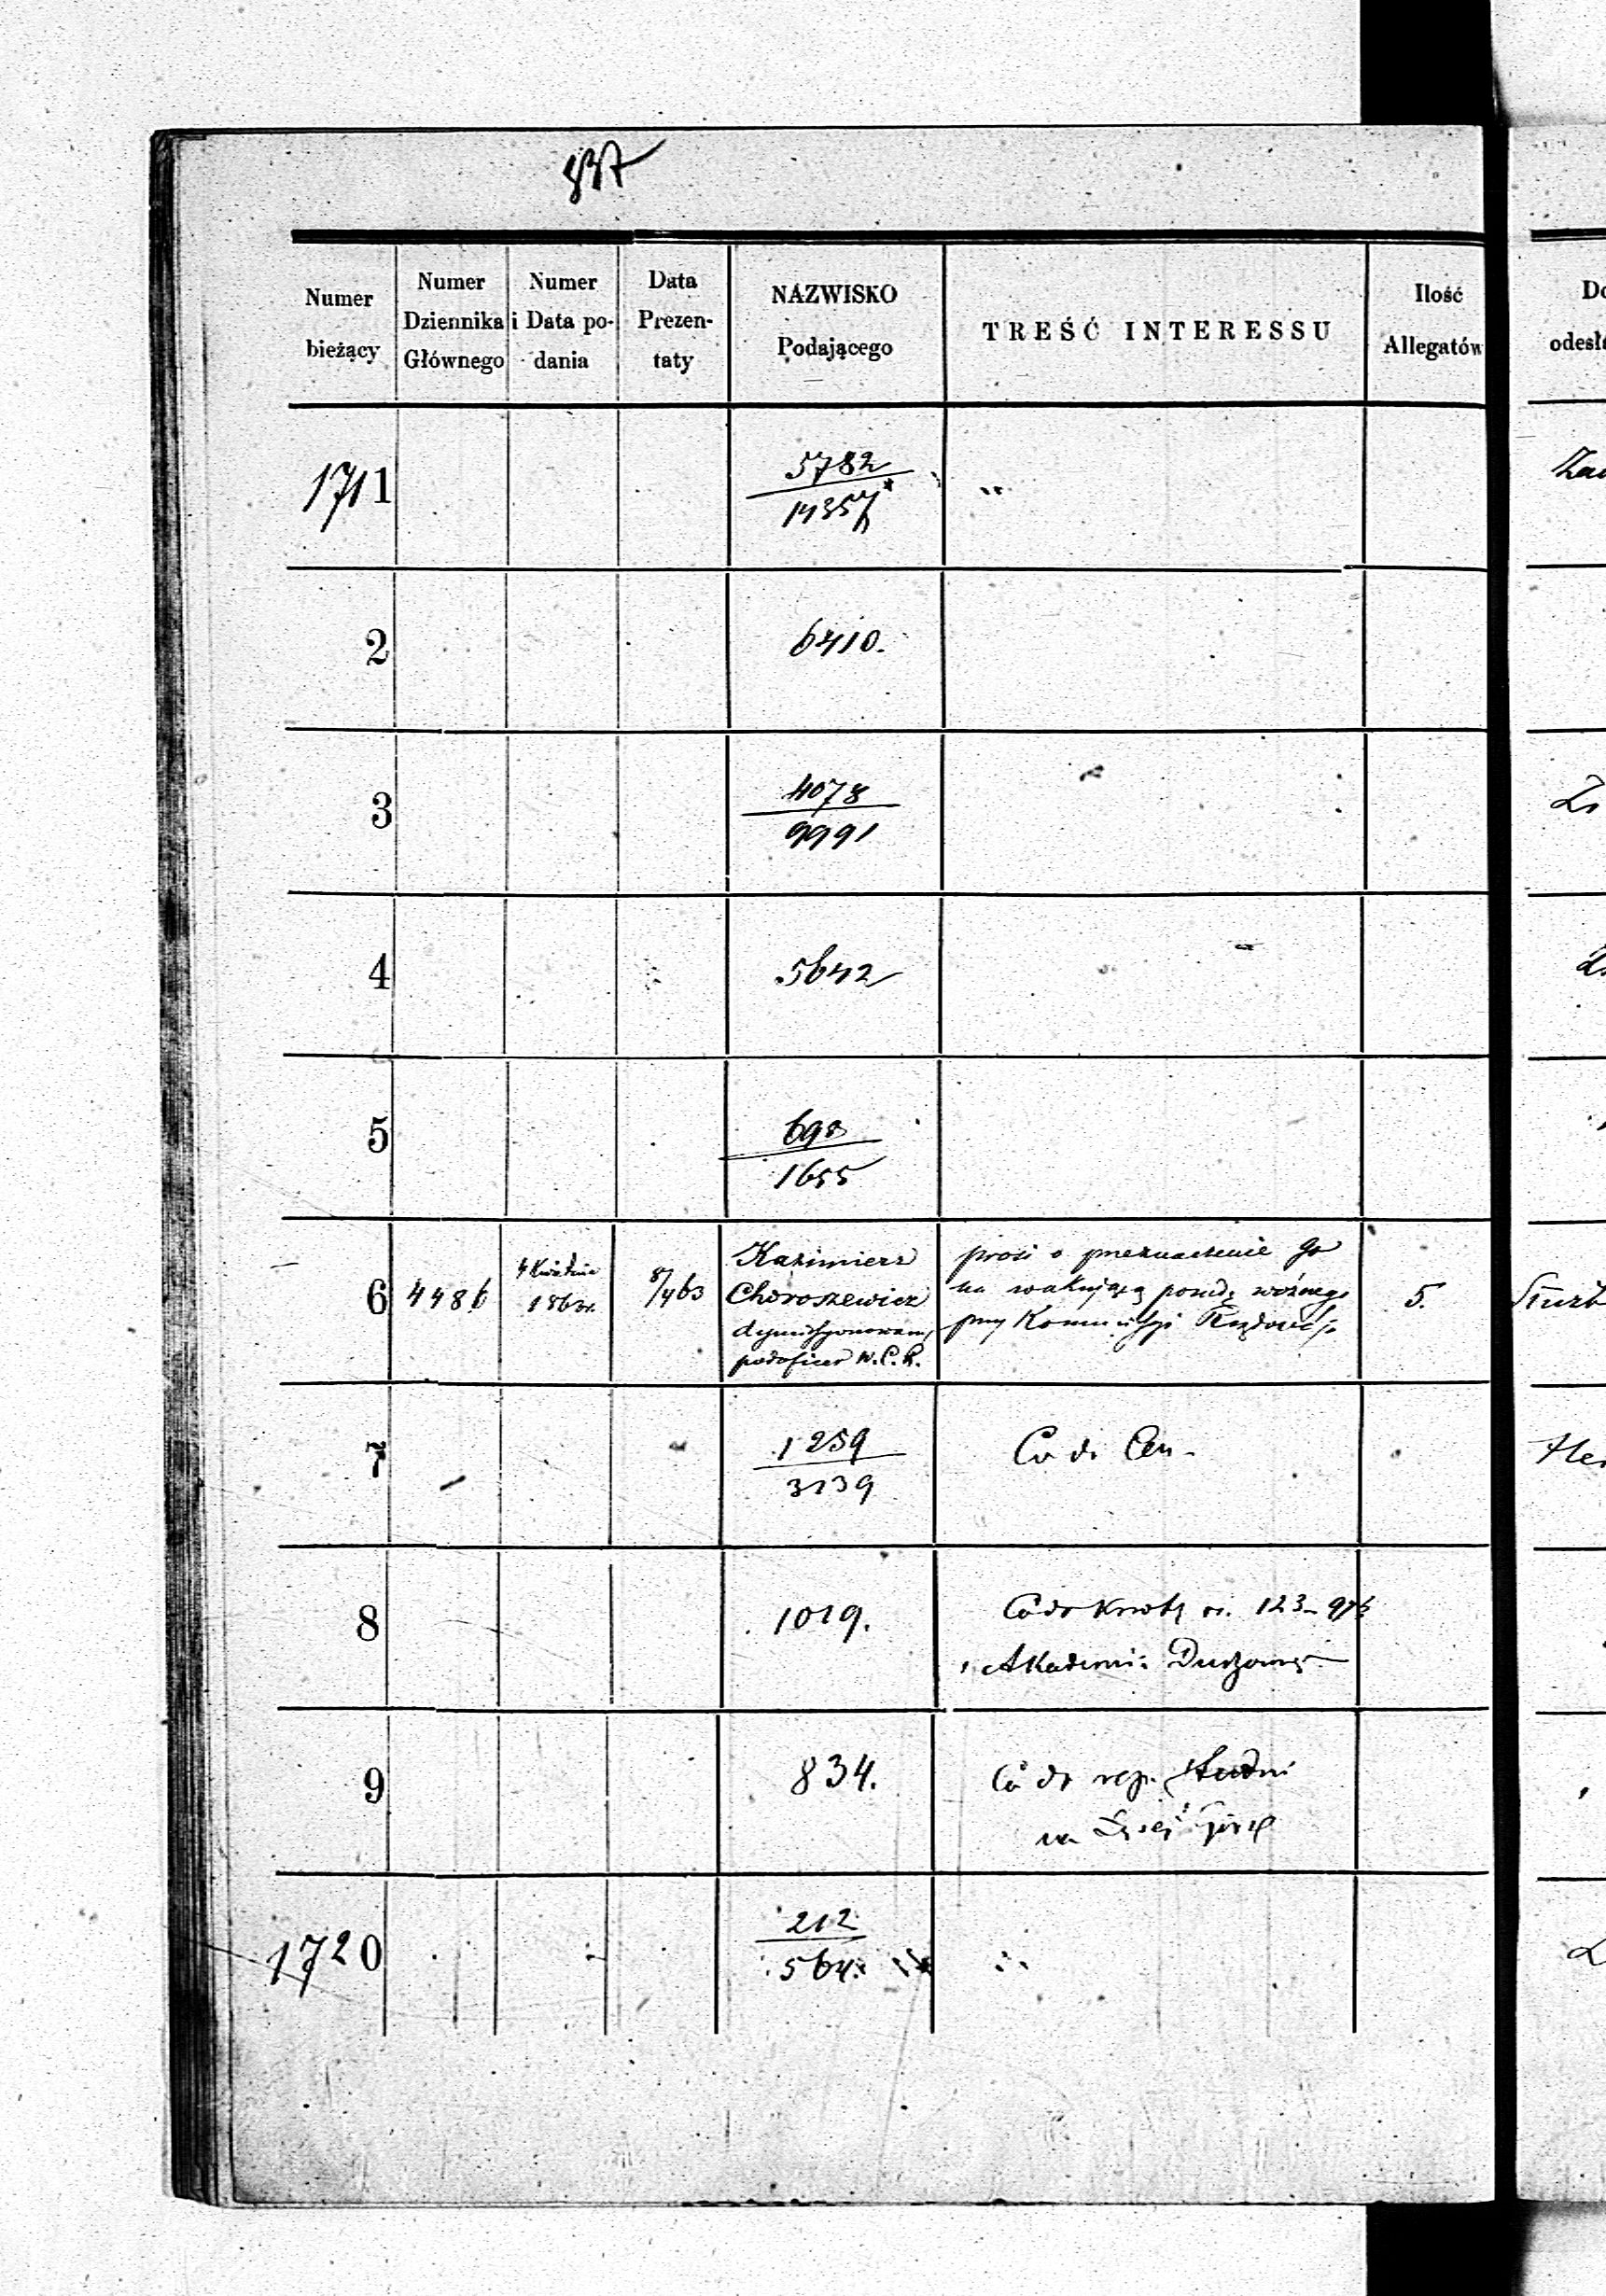 837
Numer bieżący
Numer Dziennika Głównego
Numer i Data podania
Data Prezentaty
NAZWISKO Podającego
TREŚĆ INTERESSU
Ilość Allegatów
1711
5782
14357
2
6410.
3
4078
9991
4
5642
5
698
1655
6
4486
4 Kwietnia
1863 r.
8/4 63
Kazimierz
Choroszewicz
dymissyonowany
podoficer W. C. R.
prosi o przeznaczenie go
na wakującą posadę woźnego
przy Kommissyi Rządowej
5.
7
1259
3139
Co do Cen
8
1019.
Co do kwoty rs. 123
Akademii Duchownej
9
834.
Co do rep. Studni
na Łysej Górze
1720
212
564.